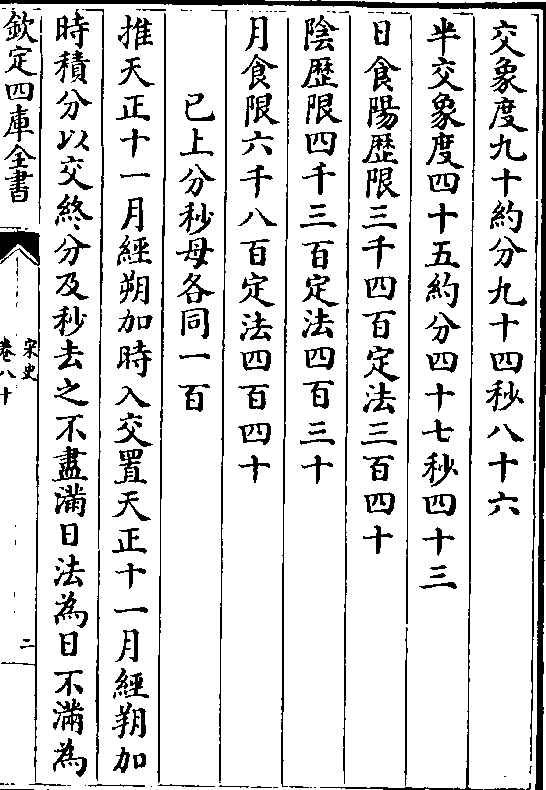 交象度九十約分九十四秒八十六
半交象度四十五約分四十七秒四十三
日食陽歴限三千四百定法三百四十
陰歴限四千三百定法四百三十
月食限六千八百定法四百四十
已上分秒母各同一百
推天正十一月經朔加時入交置天正十一月經朔加
時積分以交終分及秒去之不盡滿日法為日不滿為
欽定四庫全書
宋史
卷八十
二